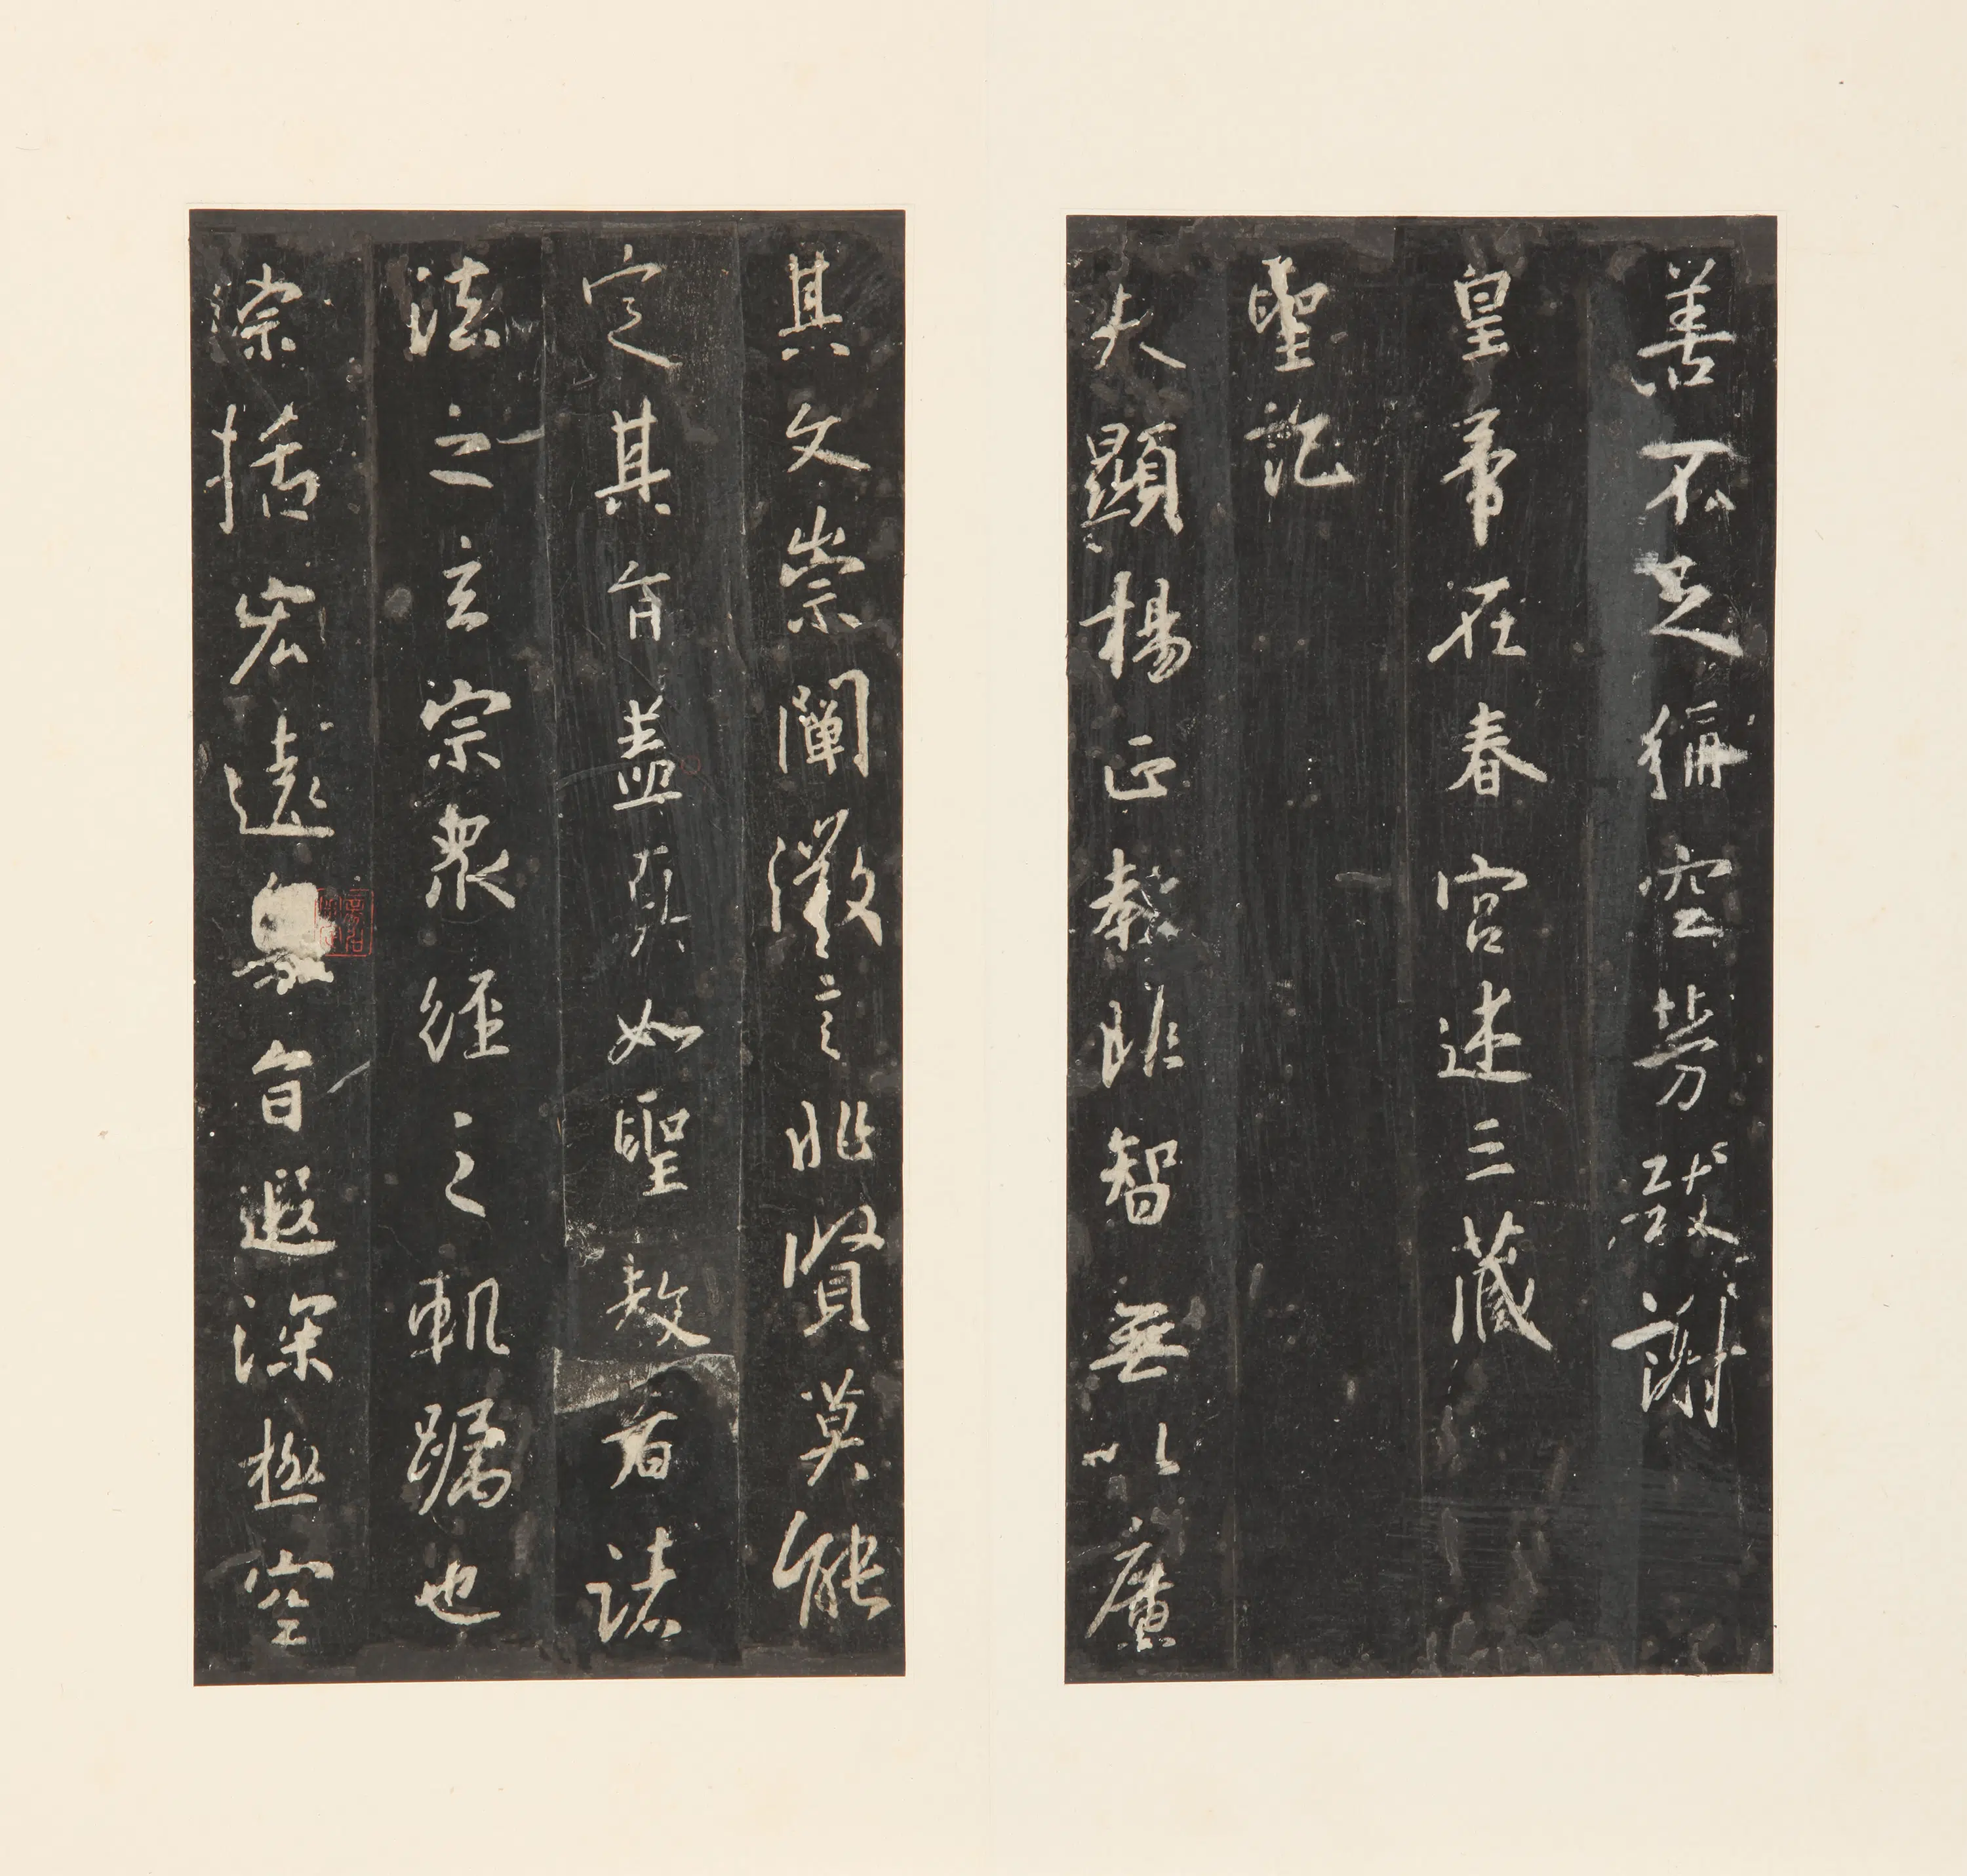 善不足稱空勞致謝
皇帝在春宮述三藏
聖記
夫顯揚正教非智無以廣
其文崇闡微言非賢莫能
定其旨蓋真如聖教者諸
法之玄宗眾經之軌躅也
綜括宏遠奧旨遐深極空